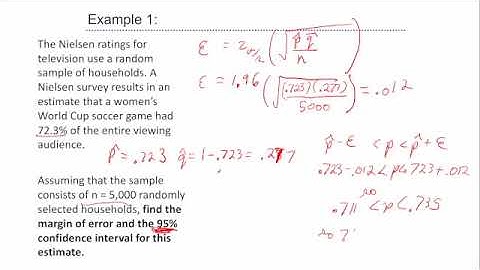 Example 1:
The Nielsen ratings for
television use a random
sample of households. A
Nielsen survey results in an
estimate that a women's
World Cup soccer game had
72.3% of the entire viewing
audience.
p̂ = .723 q̂ = 1-.723 = .277
Assuming that the sample
consists of n = 5,000 randomly
selected households, find the
margin of error and the 95%
confidence interval for this
estimate.
ε = z α/2 (√ p̂ q̂ / n)
ε = 1.96 (√ (.723)(.277) / 5000) = .012
p̂ - ε < p < p̂ + ε
.723-.012 < p < .723 + .012
.711 < p < .735